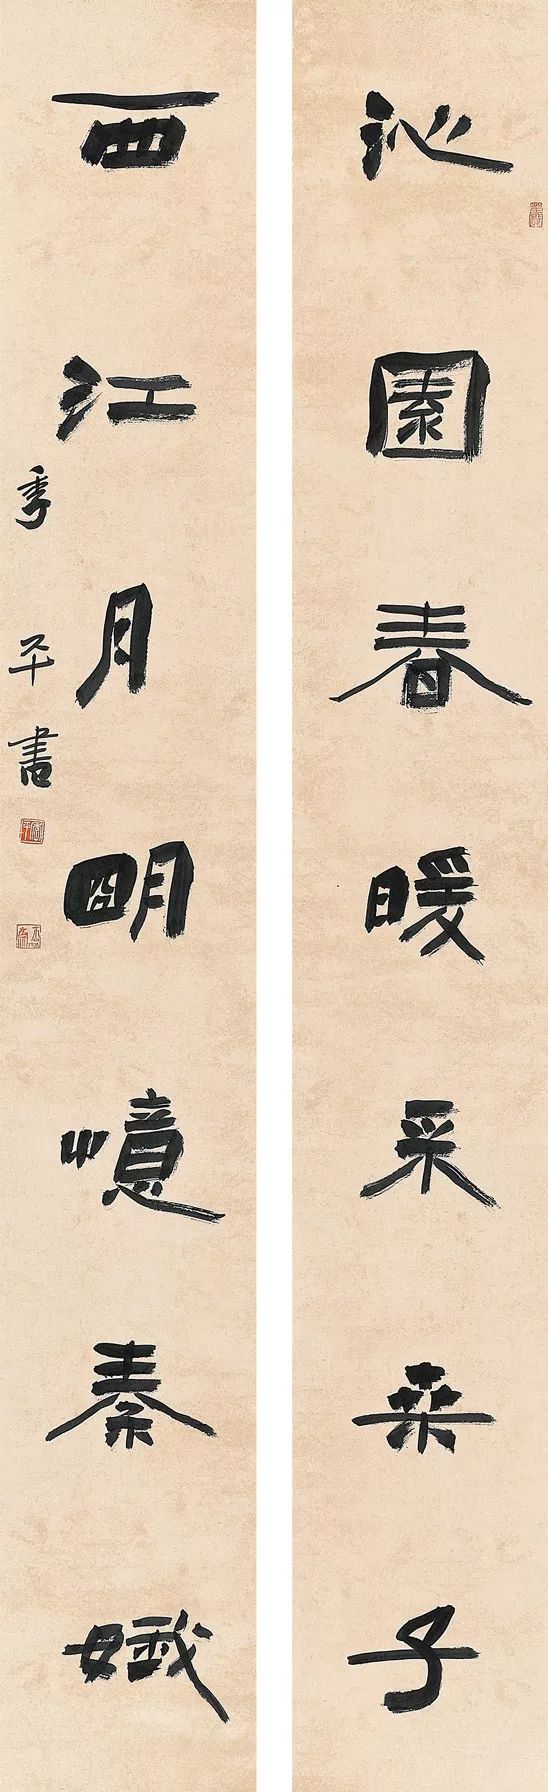 沁園春暖采桒子
西江月明憶秦娥
季平書